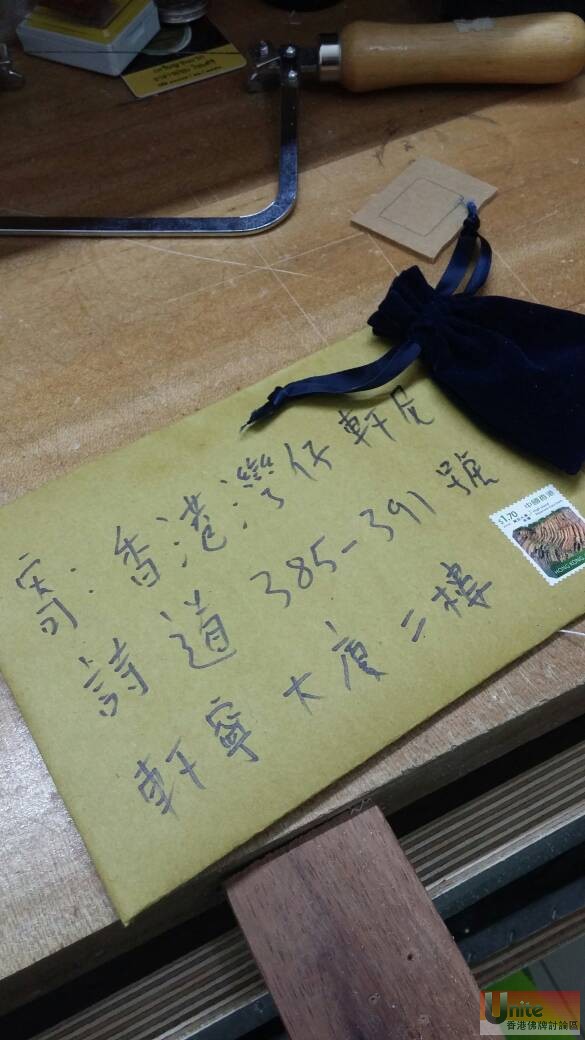 寄:香港灣仔軒尼
詩道 385-391 號
軒寧大廈二樓
$1.70
中國香港
HONG KONG
Unite
香港佛牌討論區